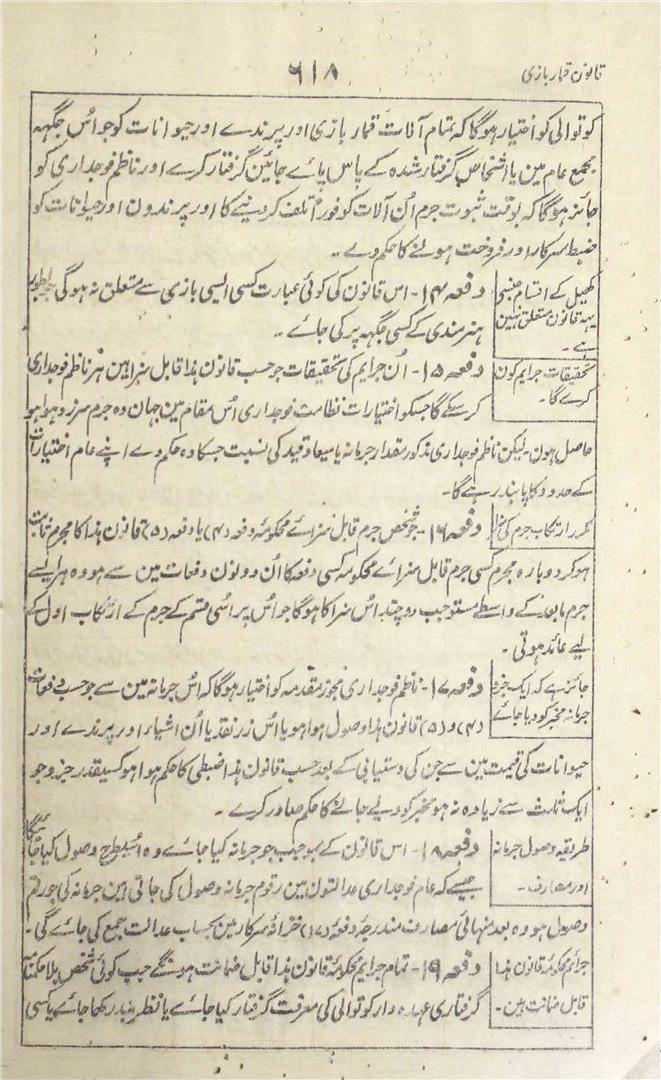 قانون قمار بازی
۶۱۸
کوتوالی کو اختیار ہوگا کہ تمام آلات قمار بازی اور پرندے اور حیوانات کو جو اُس جگہہ
مجمع عام مین یا اشخاص گرفتار شدہ کے پاس پائے جائین گرفتار کرے اور ناظم فوجداری کو
جائز ہوگا کہ بوقت ثبوت جرم اُن آلات کو فوراً تلف کر دینے کا اور پرندون اور حیوانات کو
ضبط سرکار اور فروخت ہونے کا حکم دے ۔
کھیل کے اقسام جنسے
یہہ قانون متعلق نہین
ہے ۔
دفعہ ۱۴۔ اس قانون کی کوئی عبارت کسی ایسی بازی سے متعلق نہ ہوگی جو بطور
ہنرمندی کے کسی جگہہ پر کی جائے ۔
تحقیقات جرایم کون
کرے گا ۔
دفعہ ۱۵۔ اُن جرایم کی تحقیقات جو حسب قانون ہذا قابل سزا ہین ہر ناظم فوجداری
کر سکے گا جسکو اختیارات نظامت فوجداری اُس مقام مین جہان وہ جرم سرزد ہوا ہو
حاصل ہون ۔ لیکن ناظم فوجداری مذکور مقدار جرمانہ یا میعاد قید کی نسبت جسکا وہ حکم دے اپنے عام اختیارات
کے حدود کا پابند رہے گا ۔
مکرر ارتکاب جرم کی سزا
دفعہ ۱۶۔ جو شخص جرم قابل سزائے محکومہ دفعہ (۴) یا دفعہ (۵) قانون ہذا کا مجرم ثابت
ہو کر دوبارہ مجرم کسی جرم قابل سزائے محکومہ کسی دفعہ کا اُن دونون دفعات مین سے ہو وہ ہر ایسے
جرم مابعد کے واسطے مستوجب دو چند اُس سزا کا ہوگا جو اُس پر اُسی قسم کے جرم کے ارتکاب اول کے
لیے عائد ہوتی ۔
جائز ہے کہ ایک جزو
جرمانہ مخبر کو دیا جائے
دفعہ ۱۷۔ ناظم فوجداری مجوز مقدمہ کو اختیار ہوگا کہ اُس جرمانہ مین سے جو حسب دفعات
(۴) و (۵) قانون ہذا وصول ہوا ہو یا اُس زر نقد یا اُن اشیاء اور پرندے اور
حیوانات کی قیمت مین سے جن کی دستیابی کے بعد حسب قانون ہذا ضبطی کا حکم ہوا ہو کسیقدر جزو جو
ایک ثلث سے زیادہ نہ ہو مخبر کو دیے جانے کا حکم صادر کرے ۔
طریقہ وصول جرمانہ
اور مصارف ۔
دفعہ ۱۸۔ اس قانون کے بموجب جو جرمانہ کیا جائے وہ اُسیطرح وصول کیا جائیگا
جیسے کہ عام فوجداری عدالتون مین رقوم جرمانہ وصول کی جاتی ہین جرمانہ کی جو رقم
وصول ہو وہ بعد منہائی مصارف مندرجہ دفعہ (۱۷) خزانہ سرکار مین بحساب عدالت جمع کی جائے گی ۔
جرایم محکومہ قانون ہذا
قابل ضمانت ہین ۔
دفعہ ۱۹۔ تمام جرایم محکومہ قانون ہذا قابل ضمانت ہونگے جب کوئی شخص بلا حکمنامہ
گرفتاری عہدہ دار کوتوالی کی معرفت گرفتار کیا جائے یا نظر بند رکھا جائے یا کسی